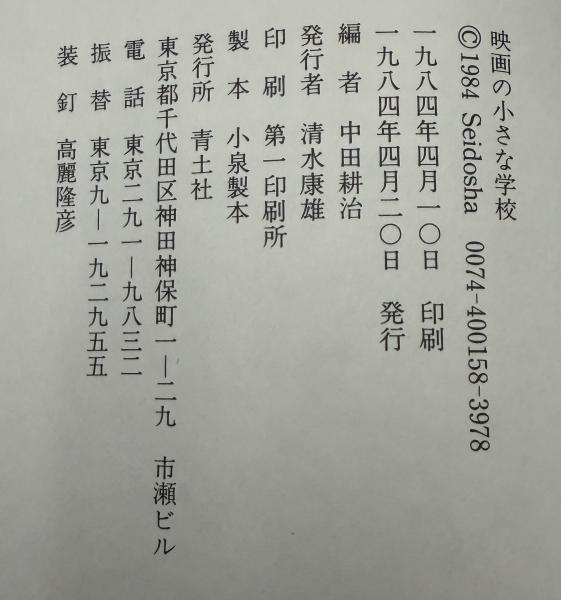 映画の小さな学校
©1984 Seidosha 0074-400158-3978
一九八四年四月一〇日 印刷
一九八四年四月二〇日 発行
編者 中田耕治
発行者 清水康雄
印刷 第一印刷所
製本 小泉製本
発行所 青土社
東京都千代田区神田神保町一―二九 市瀬ビル
電話 東京二九一―九八三二
振替 東京九―一九二九五五
装釘 高麗隆彦